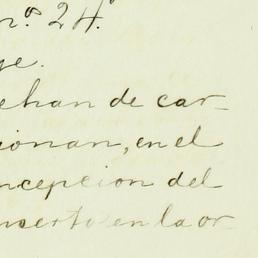 n.º 24.
ge.
se han de car-
cionan, en el
ncepcion del
nserto en la or-